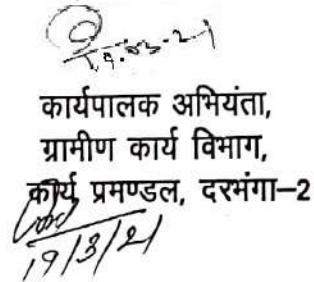 19.03.21
कार्यपालक अभियंता,
ग्रामीण कार्य विभाग,
कार्य प्रमण्डल, दरभंगा–2
19/3/21